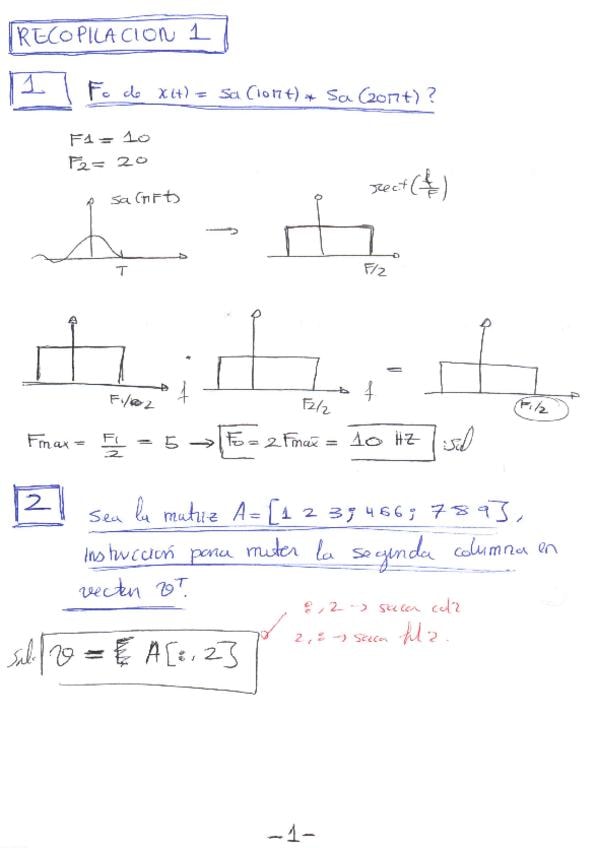 RECOPILACION 1
1 Fo de x(t) = Sa(10πt) * Sa(20πt)?
F1 = 10
F2 = 20
Sa(πFt) → rect(f/F)
T
F/2
F1/2 f · F2/2 f = F1/2
Fmax = F1/2 = 5 → Fo = 2Fmax = 10 HZ :sol
2 Sea la matriz A = [1 2 3; 4 5 6; 7 8 9],
instrucción para meter la segunda columna en
vector v^T.
:,2 → sacar col 2
2,: → sacar fil 2.
sol: v = A[:,2]
-1-